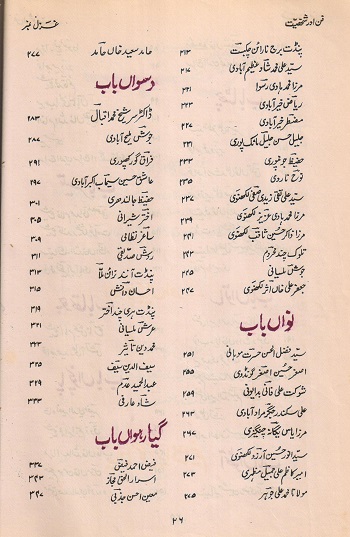 فن اور شخصیت
غزل نمبر
پنڈت برج نارائن چکبست ۲۱۳
سید علی محمد شاد عظیم آبادی ۲۱۷
مرزا ہادی رسوا ۲۲۱
ریاض خیر آبادی ۲۲۳
مضطر خیر آبادی ۲۲۷
جلیل حسن جلیل مانک پوری ۲۳۱
حفیظ جونپوری ۲۳۳
نوح ناروی ۲۳۵
سید علی نقی زیدی صفی لکھنوی ۲۳۷
مرزا محمد ہادی عزیز لکھنوی ۲۳۹
مرزا ذاکر حسین ثاقب لکھنوی ۲۴۱
تلوک چند محروم ۲۴۳
جوش ملسیانی ۲۴۵
جعفر علی خاں اثر لکھنوی ۲۴۷
نواں باب
سید فضل الحسن حسرت موہانی ۲۵۱
اصغر حسین اصغر گونڈوی ۲۵۵
شوکت علی فانی بدایونی ۲۵۹
علی سکندر جگر مراد آبادی ۲۶۳
مرزا یاس یگانہ چنگیزی ۲۶۷
سید انور حسین آرزو لکھنوی ۲۷۱
امیر کاظم علی جمیل مظہری ۲۷۳
مولانا محمد علی جوہر ۲۷۵
حامد سعید خاں حامد ۲۷۷
دسواں باب
ڈاکٹر سر شیخ محمد اقبال ۲۸۳
جوش ملیح آبادی ۲۸۷
فراق گورکھپوری ۲۹۱
عاشق حسین سیماب اکبر آبادی ۲۹۷
حفیظ جالندھری ۳۰۱
اختر شیرانی ۳۰۵
ساغر نظامی ۳۰۹
روش صدیقی ۳۱۱
پنڈت آنند نرائن ملا ۳۱۳
احسان دانش ۳۱۷
پنڈت ہری چند اختر ۳۱۹
عرش ملسیانی ۳۲۱
محمد دین تاثیر ۳۲۳
سیف الدین سیف ۳۲۵
عبدالحمید عدم ۳۲۹
شاد عارفی ۳۳۳
گیارہواں باب
فیض احمد فیض ۳۳۷
اسرار الحق مجاز ۳۴۳
معین احسن جذبی ۳۴۷
۲۶